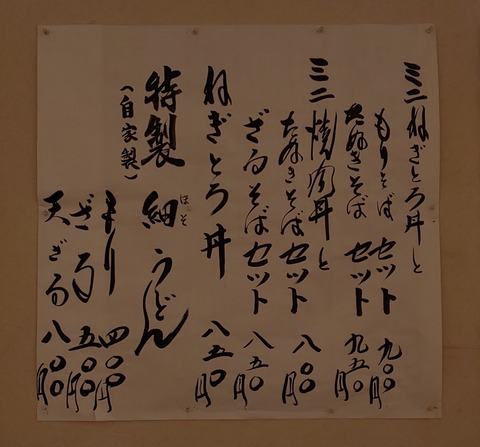 ミニねぎとろ丼と
もりそばセット 九〇〇円
たぬきそばセット 九五〇円
ミニ焼肉丼と
たぬきそばセット 八〇〇円
ざるそばセット 八五〇円
ねぎとろ丼 八五〇円
特製 細うどん
ほそ
(自家製)
もり 四〇〇円
ざる 五〇〇円
天ざる 八〇〇円